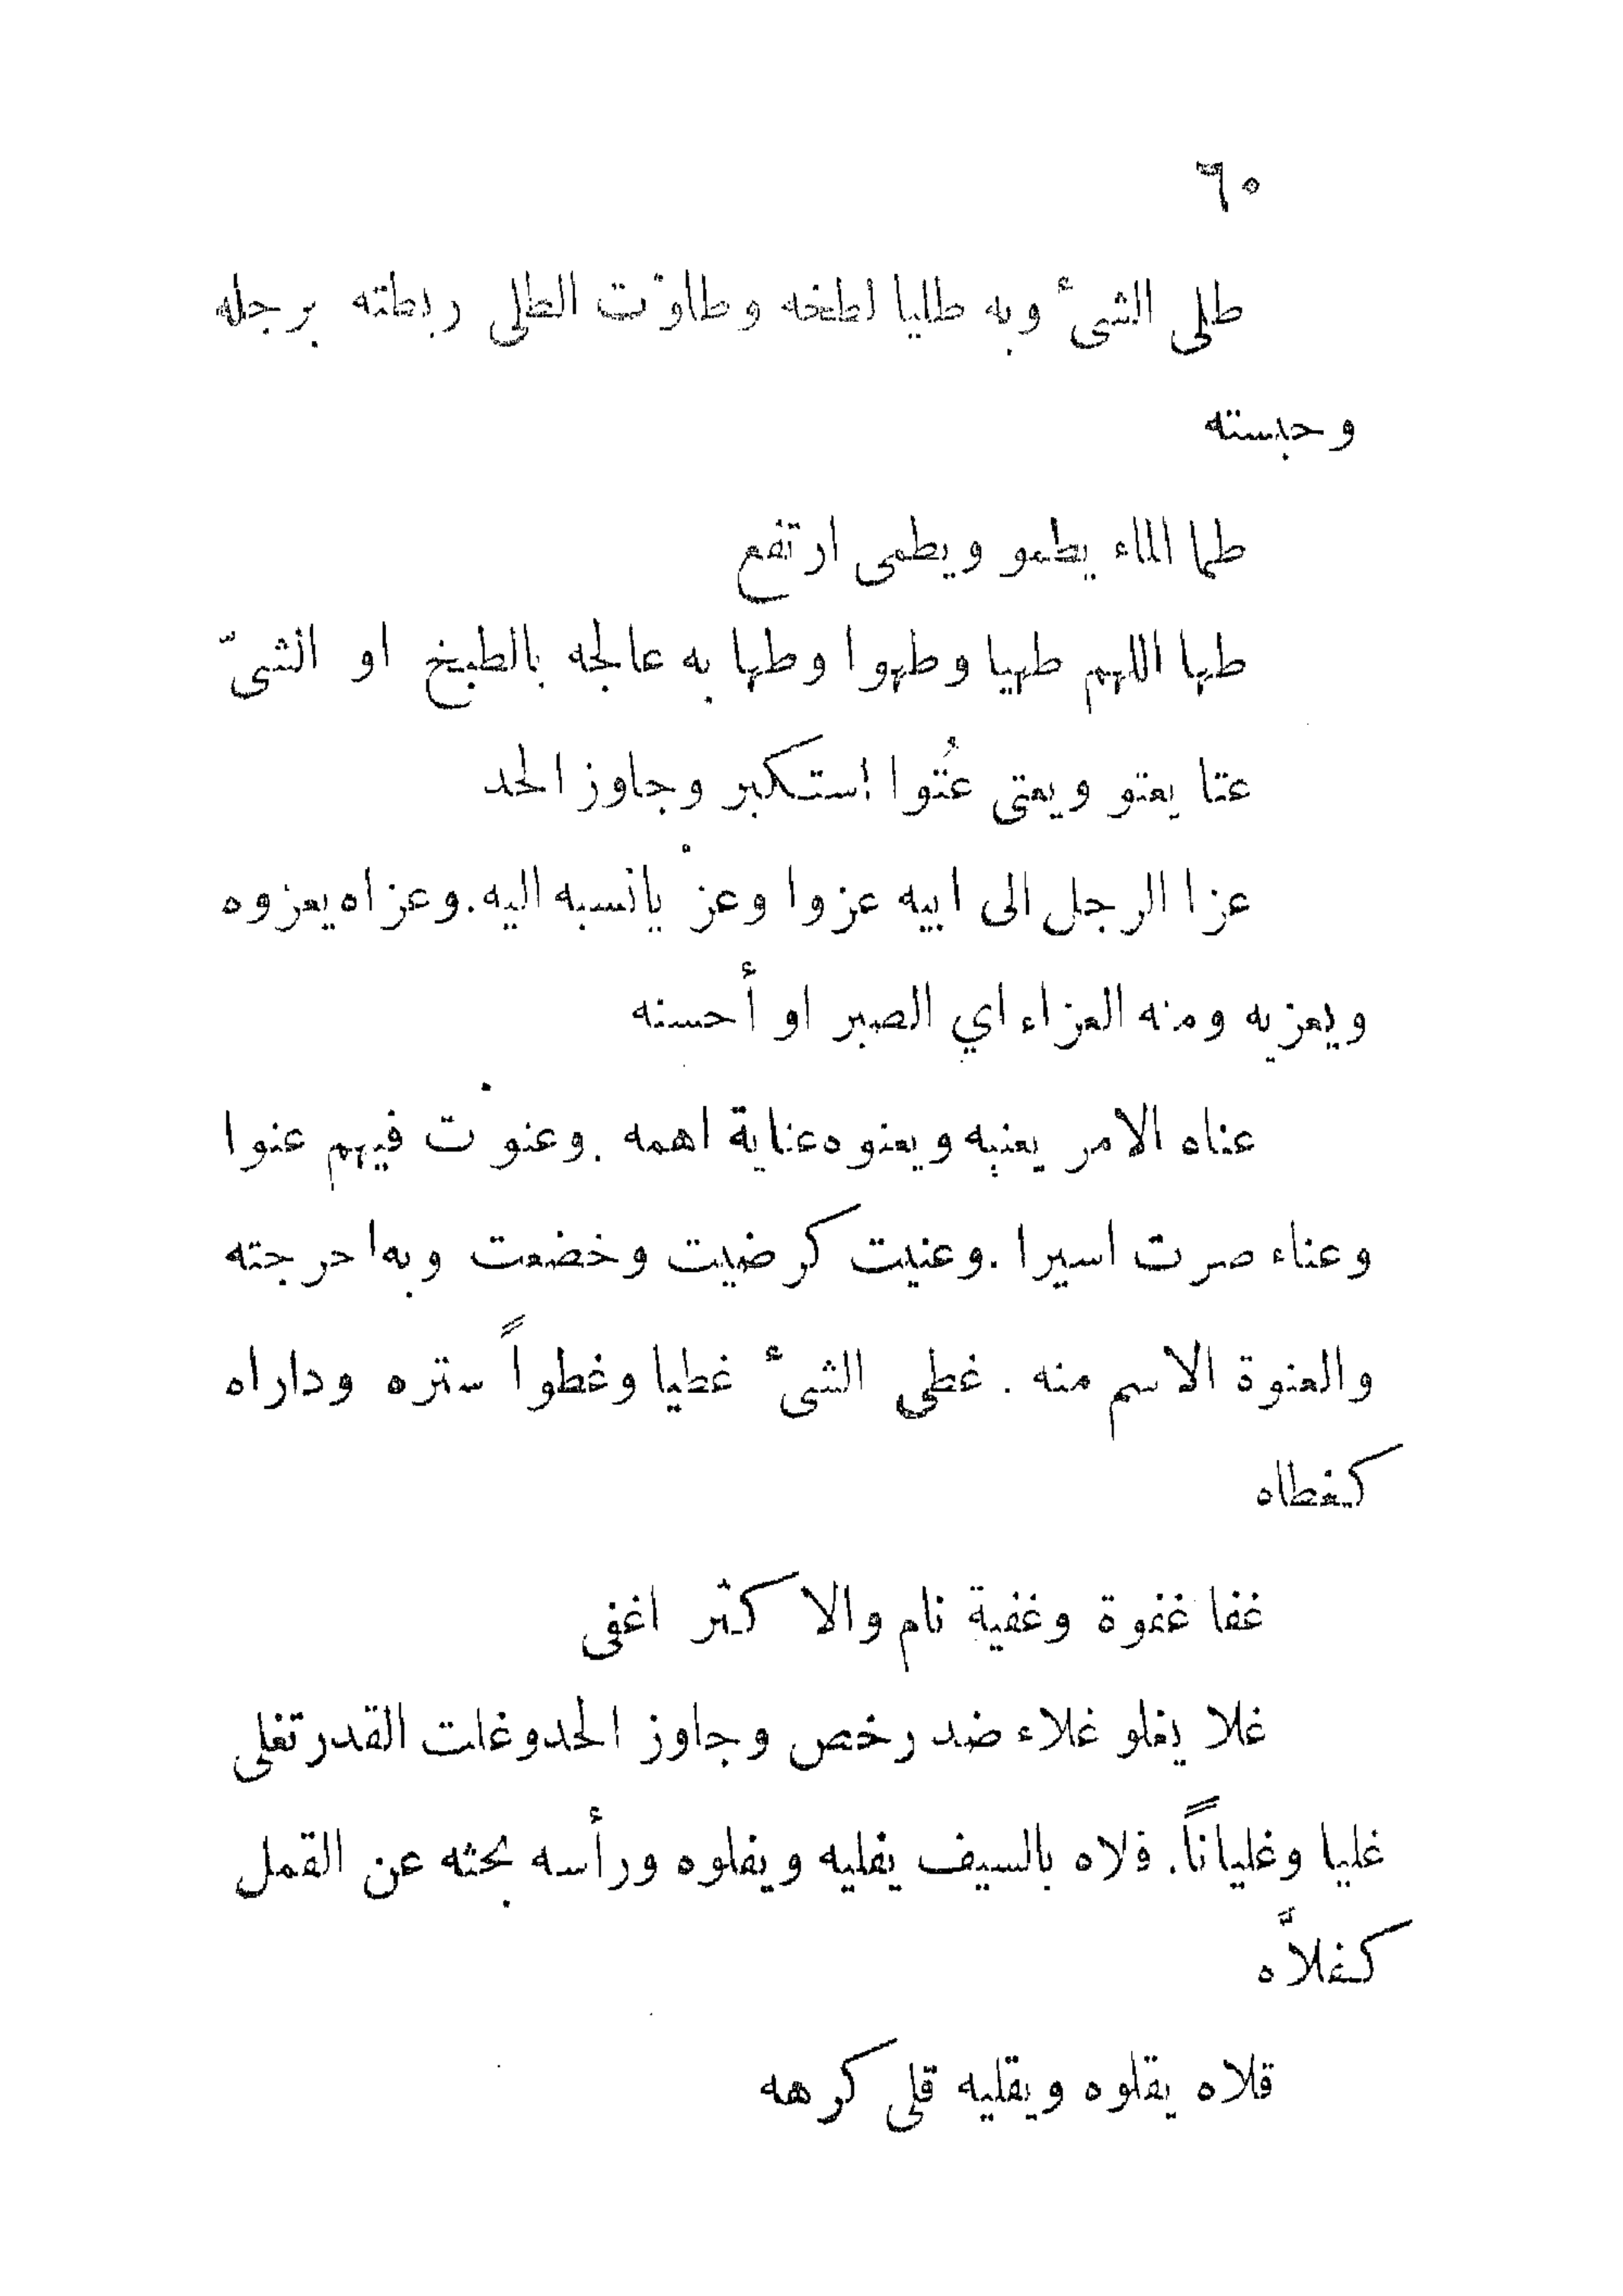 ٦٠
طلى الشىٔ وبه طليا لطخه وطلوْت الطلى ربطته برجله
وحبسته
طما الماء يطمو ويطمى ارتفع
طها اللهم طهيا وطهوا وطها به عالجه بالطبخ او الشىّ
عتا يعتو ويعتى عُتوا استكبر وجاوز الحد
عزا الرجل الى ابيه عزوا وعزْ يانسبه اليه. وعزاه يعزوه
ويعزيه ومنه العزاء اي الصبر او أحسنه
عناه الامر يعنيه ويعنوه عناية اهمه . وعنوْت فيهم عنوا
وعناء صرت اسيرا . وعنيت كرضيت وخضعت وبه احرجته
والعنوة الاسم منه . غطى الشىٔ غطيا وغطواً ستره وداراه
كغطاه
غفا غفوة وغفية نام والاكثر اغفى
غلا يغلو غلاء ضد رخص وجاوز الحد وغلت القدر تغلى
غليا وغلياناً. فلاه بالسيف يفليه ويفلوه ورأسه بحثه عن القمل
كفلاَّه
قلاه يقلوه ويقليه قلى كرهه